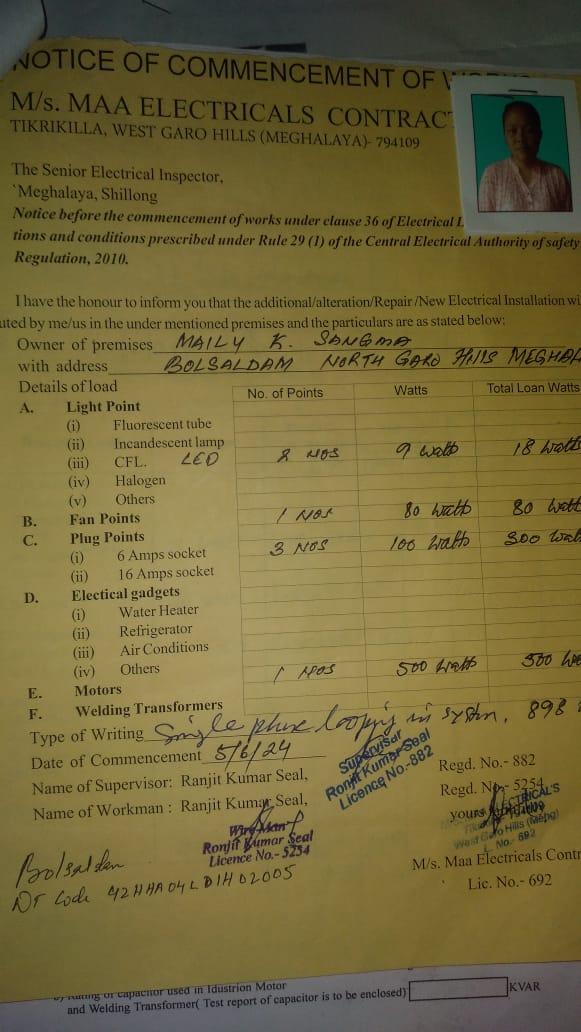 NOTICE OF COMMENCEMENT OF
M/s. MAA ELECTRICALS CONTRAC
TIKRIKILLA, WEST GARO HILLS (MEGHALAYA)- 794109
The Senior Electrical Inspector,
Meghalaya, Shillong
Notice before the commencement of works under clause 36 of Electrical
tions and conditions prescribed under Rule 29 (1) of the Central Electrical Authority of safety
Regulation, 2010.
I have the honour to inform you that the additional/alteration/Repair /New Electrical Installation wi
uted by me/us in the under mentioned premises and the particulars are as stated below:
Owner of premises MAILY K. SANGMA
with address BOLSALDAM NORTH GARO HILLS MEGHAL
Details of load No. of Points Watts Total Loan Watts
A. Light Point
(i) Fluorescent tube
(ii) Incandescent lamp
(iii) CFL. LED 2 NOS 9 Watts 18 Watts
(iv) Halogen
(v) Others
B. Fan Points 1 NOS 80 Watts 80 Watt
C. Plug Points
(i) 6 Amps socket 3 NOS 100 Watts 300 Wat
(ii) 16 Amps socket
D. Electical gadgets
(i) Water Heater
(ii) Refrigerator
(iii) Air Conditions
(iv) Others 1 NOS 500 Watts 500 Wa
E. Motors
F. Welding Transformers
Type of Writing Single phase looping in system, 898
Date of Commencement 5/6/24
Supervisar
Ronjit Kumar Seal
Licence No.-882
Name of Supervisor: Ranjit Kumar Seal, Regd. No.- 882
Name of Workman : Ranjit Kumar Seal, Regd. No.- 5254
yours
West Garo Hills (Megh)
L. No.- 692
Wire Man
Ronjit Kumar Seal
Licence No.- 5254
M/s. Maa Electricals Contr
Lic. No.- 692
Bolsaldam
DT Code 42HHA04LD1H02005
Rating of capacitor used in Idustrion Motor
and Welding Transformer( Test report of capacitor is to be enclosed) KVAR